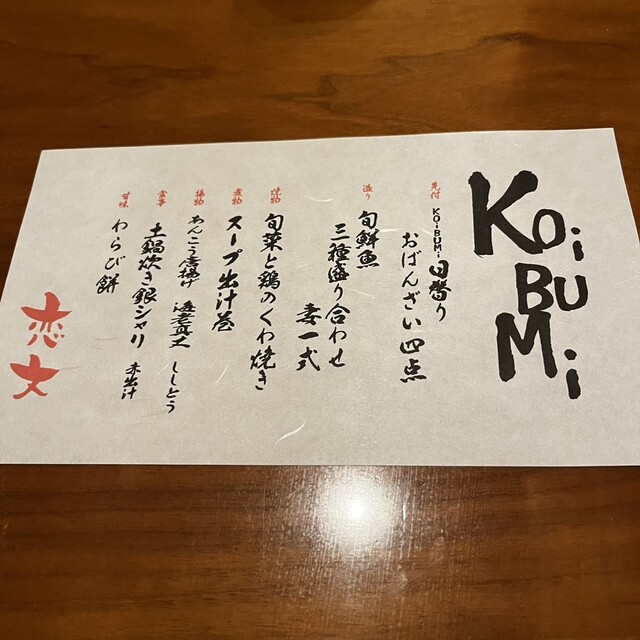 KOiBUMi
先付
KOiBUMi日替り
おばんざい四点
造り
旬鮮魚
三種盛り合わせ
妻一式
焼物
旬菜と鶏のくわ焼き
煮物
スープ出汁巻
揚物
あんこう唐揚げ 海老真丈 ししとう
食事
土鍋炊き銀シャリ 赤出汁
甘味
わらび餅
恋文